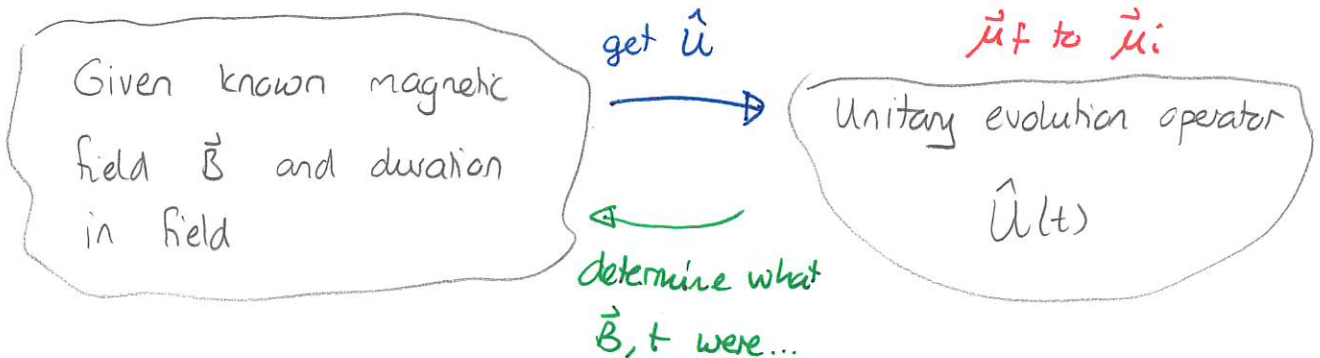 Given known magnetic
field B⃗ and duration
in field
get Û
μ⃗f to μ⃗i
Unitary evolution operator
Û(t)
determine what
B⃗, t were...